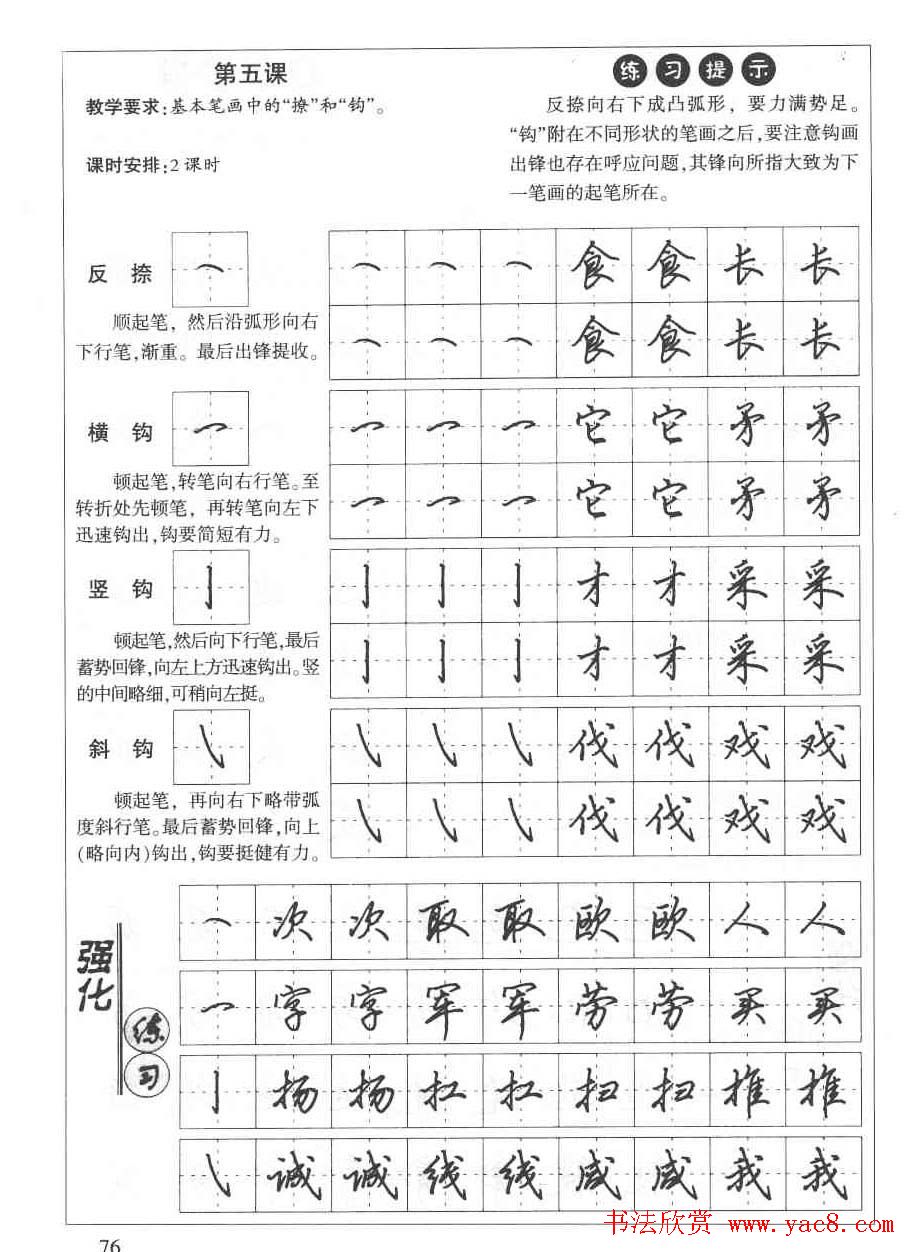 第五课
教学要求:基本笔画中的“撩”和“钩”。
课时安排:2课时
练习提示
反捺向右下成凸弧形，要力满势足。
“钩”附在不同形状的笔画之后,要注意钩画
出锋也存在呼应问题,其锋向所指大致为下
一笔画的起笔所在。
反 捺
顺起笔，然后沿弧形向右
下行笔,渐重。最后出锋提收。
食 食 长 长
食 食 长 长
横 钩
顿起笔,转笔向右行笔。至
转折处先顿笔，再转笔向左下
迅速钩出,钩要简短有力。
它 它 矛 矛
它 它 矛 矛
竖 钩
顿起笔,然后向下行笔,最后
蓄势回锋,向左上方迅速钩出。竖
的中间略细,可稍向左挺。
才 才 采 采
才 才 采 采
斜 钩
顿起笔，再向右下略带弧
度斜行笔。最后蓄势回锋,向上
(略向内)钩出,钩要挺健有力。
伐 伐 戏 戏
伐 伐 戏 戏
强化
练习
次 次 取 取 欧 欧 人 人
字 字 军 军 劳 劳 买 买
扬 扬 扛 扛 扫 扫 推 推
诚 诚 线 线 咸 咸 我 我
书法欣赏 www.yac8.com
76